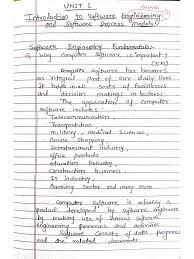 UNIT 1
Introduction to Software Engineering
and Software Process models
Software Engineering Fundamentals:-
Q Why Computer Software is important?
Computer Software has become
an integral part of our daily lives
It helps in all sorts of businesses
and decision makings in business
The application of computer
Software includes:
Telecommunication
Transportation
military, medical Sciences,
Online Shopping
Entertainment industry,
office products
Education industry,
Construction business
IT industry
Banking Sector and many more
Computer Software is actually a
product developed by software engineers
by making use of various software
engineering processes and activities
Software consists of data, programs
and the related documents